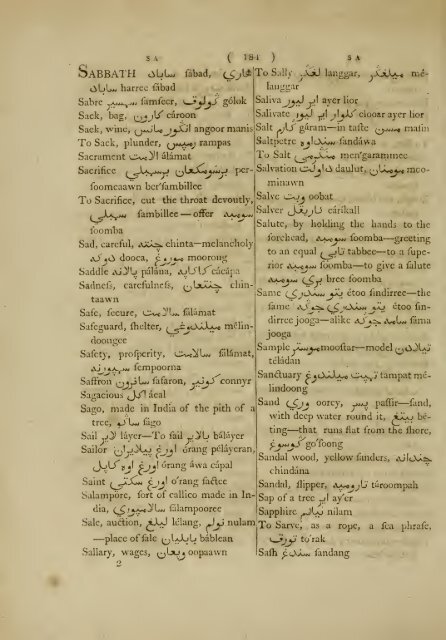 SA ( 181 ) SA
SABBATH ساباد fábad, هاري
ساباد harree fábad
Sabre سمسير famfeer, گولوق gólok
Sack, bag, كارون cároon
Sack, wine, اڠكور مانس angoor manis
To Sack, plunder, رمڤس rampas
Sacrament الامت álámat
Sacrifice per-
foomcaawn ber'fambillee
To Sacrifice, cut the throat devoutly,
سمبيلي fambillee—offer سومبه
foomba
Sad, careful, چنتا chinta—melancholy
دوك dooca, موروڠ moorong
Saddle ڤالان pálána, كاكاڤ cácápa
Sadnefs, carefulnefs, چنتاهن chin-
taawn
Safe, fecure, سلامت fálámat
Safeguard, fhelter, melin-
doongee
Safety, profperity, سلامت fálámat,
سمڤورن fempoorna
Saffron سافرون fafaron, كونير connyr
Sagacious اكل áeal
Sago, made in India of the pith of a
tree, ساگو fágo
Sail لاير láyer—To fail بالاير báláyer
Sailor órang péláyeran,
órang áwa cápal
Saint اورڠ سكتي o'rang factee
Salampore, fort of callico made in In-
dia, سلامڤوري fálampooree
Sale, auction, ليلڠ lélang, نولم nulam
—place of fale بابليان báblean
Sallary, wages, وڤاهن oopaawn
2
To Sally لڠڬر langgar, ميلڠڬر mé-
langgar
Saliva اير ليور ayer lior
Salivate كلوار اير ليور clooar ayer lior
Salt گارم gáram—in tafte ماسن mafin
Saltpetre سنداوا fandáwa
To Salt men'garammee
Salvation دولت daulut, moo-
minawn
Salve وبت oobat
Salver cárikall
Salute, by holding the hands to the
forehead, سومبه foomba—greeting
to an equal تابي tabbee—to a fupe-
rior سومبه foomba—to give a falute
بري سومبه bree foomba
Same étoo findirree—the
fame étoo fin-
dirree jooga—alike سام جوك fama
jooga
Sample موستر mooftar—model تيلادن
téládan
Sanctuary tampat mé-
lindoong
Sand وري oorey, ڤسر paffir—fand,
with deep water round it, بيتڠ bé-
ting—that runs flat from the fhore,
گوسوڠ go'foong
Sandal wood, yellow fanders, چندان
chindána
Sandal, flipper, تارومڤه tároompah
Sap of a tree اير ay'er
Sapphire نيلم nilam
To Sarve, as a rope, a fea phrafe,
تورق to'rak
Safh سندڠ fandang